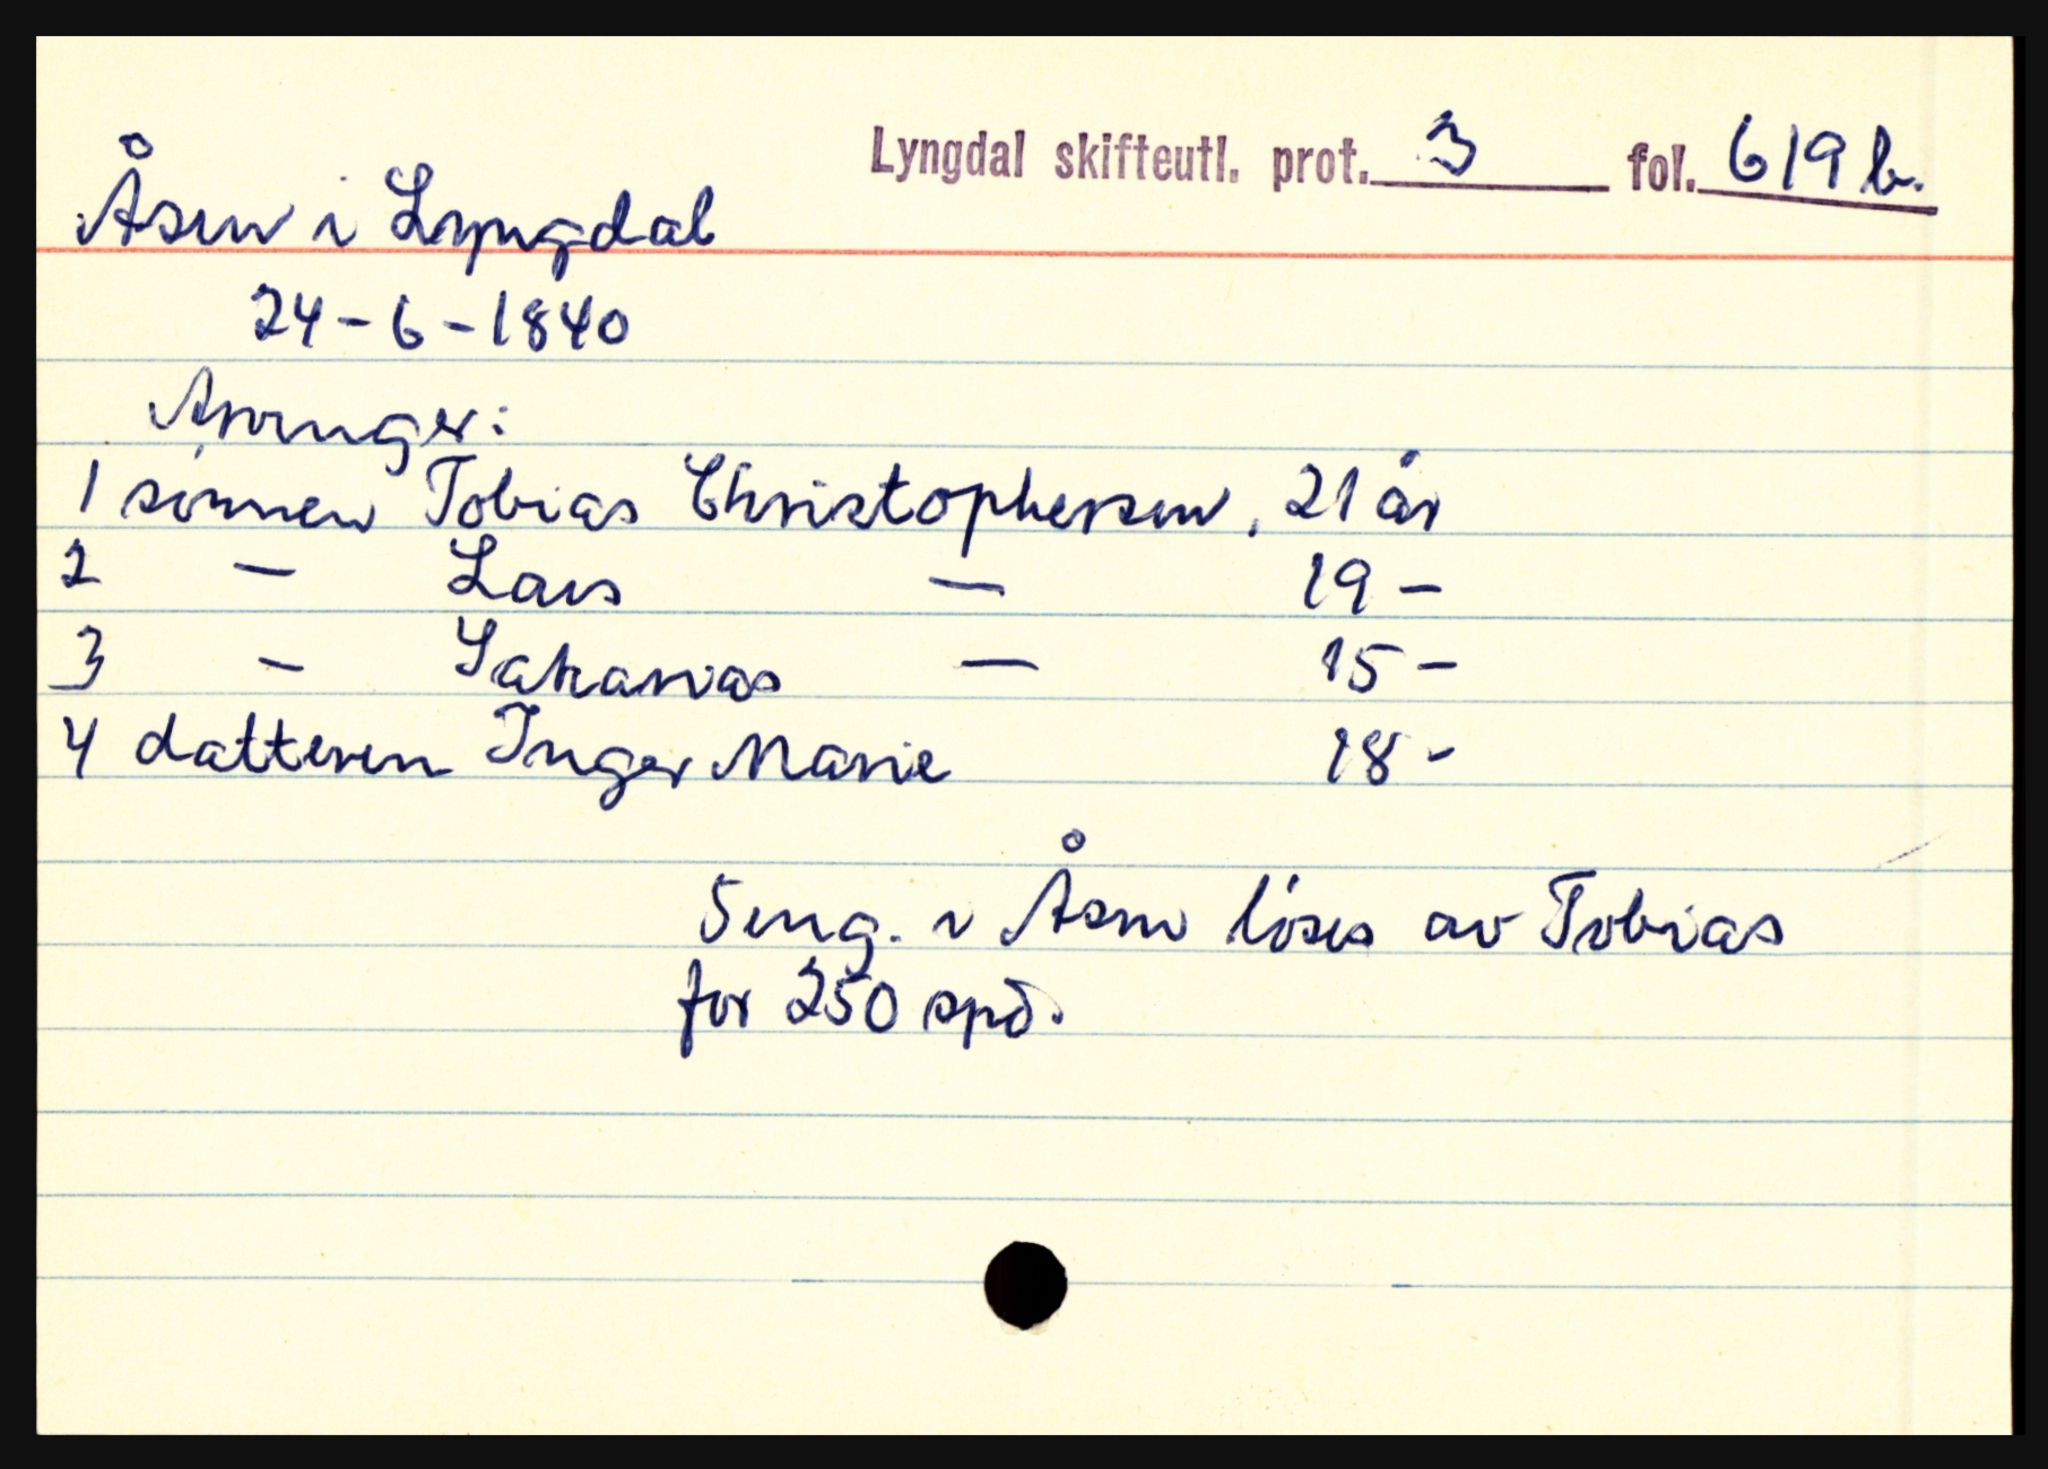 Lyngdal skifteutl. prot. 3 fol. 619 b.
Åsen i Lyngdal
24-6-1840
Arvinger:
1 sönnen Tobias Christophersen, 21 år
2 — Lars — 19 -
3 - Sakarias — 15 -
4 datteren Inger Marie 18 -
5 eng. i Åsen löses av Tobias
for 250 spd.